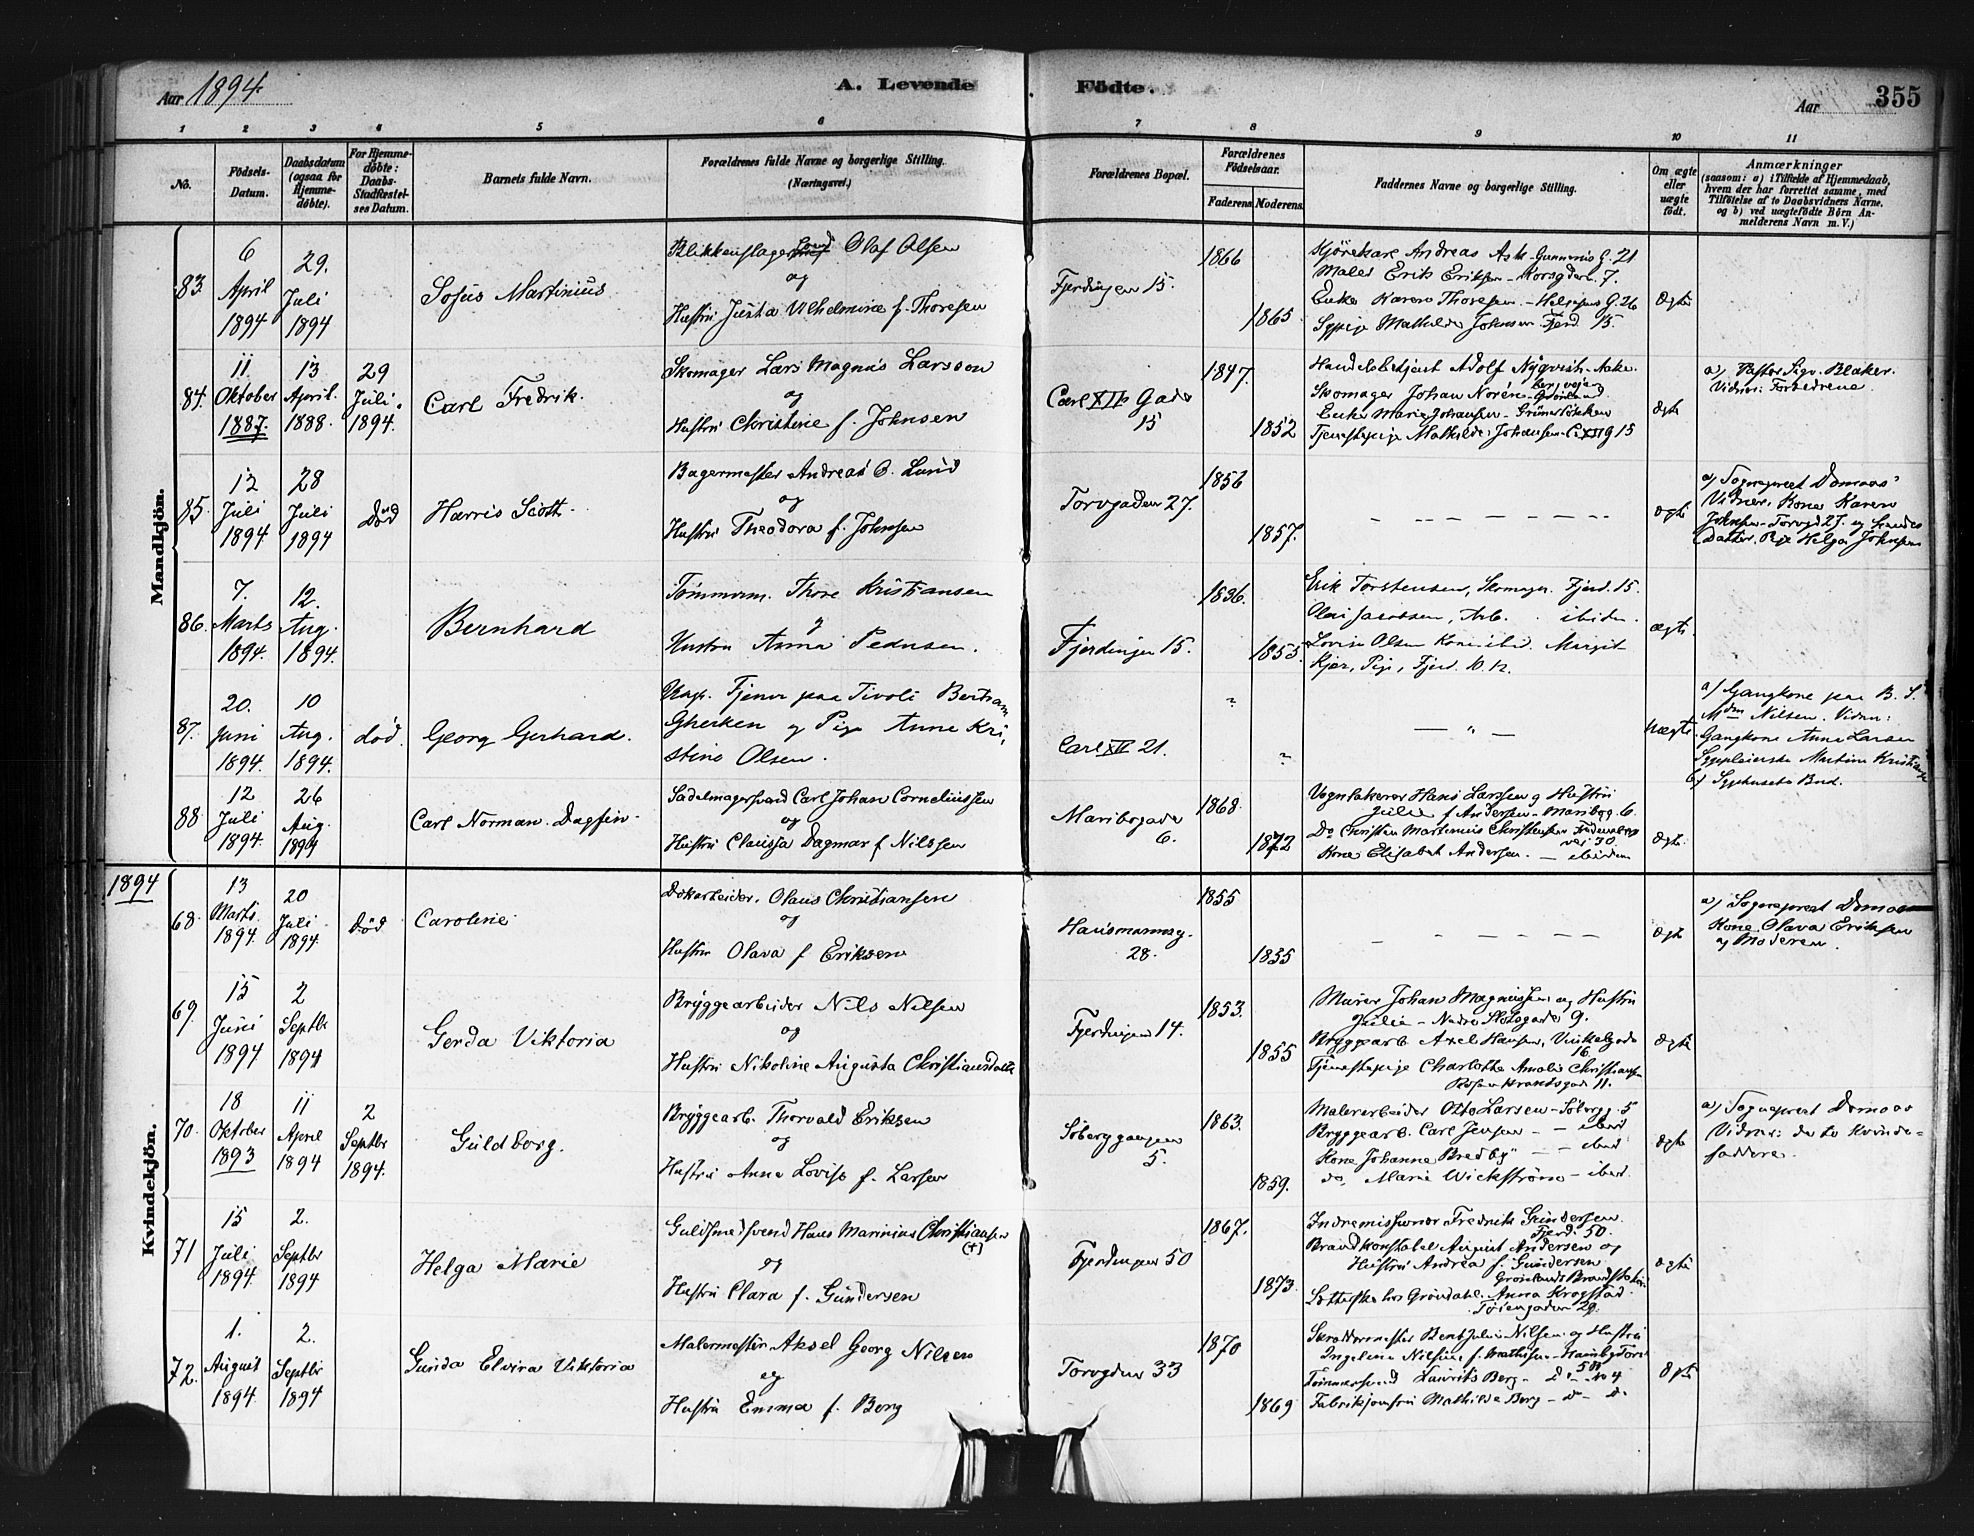 Aar 1894.
A. Levende Födte.
Aar
355
1 2 3 4 5 6 7 8 9 10 11
No.
Födsels-
Datum.
Daabsdatum
(ogsaa for
Hjemme-
døbte).
For Hjemme-
døbte:
Daabs-
Stadfæstel-
ses Datum.
Barnets fulde Navn.
Forældrenes fulde Navne og borgerlige Stilling.
(Næringsvei.)
Forældrenes Bopæl.
Forældrenes
Födselsaar.
Faderens Moderens.
Faddernes Navne og borgerlige Stilling.
Om ægte
eller
uægte
født.
Anmærkninger
(saasom: a) i Tilfælde af Hjemmedaab,
hvem der har forrettet samme, med
Tilföielse af to Daabsvidners Navne,
og b) ved uægtefödte Börn An-
melderens Navn m. V.)
Mandkjön.
83.
6
April
1894
29.
Juli
1894
Sofus Martinius
Blikkenslager Olaf Olsen
og
Hustru Justa Vilhelmine f. Thoresen
Fjerdingen 15.
1866
1865
Kjörekarl Andreas Ask - Gunnerius G. 21
Maler Erik Eriksen - Korsgaden 7.
Enke Karen Thoresen - Helgesens G. 26
Sypige Mathilde Johnsen Fjerd. 15.
Ægte
84.
11
Oktober
1887.
13
April
1888.
29
Juli
1894.
Carl Fredrik.
Skomager Lars Magnus Larsson
og
Hustru Christine f. Johnsen
Carl XIIs Gade
15
1847.
1852
Handelsbetjent Adolf Nyqvist - Aake-
bergveien
Skomager Johan Norén - Grönland
Enke Marie Johansen - Grünerløkken
Tjenestepige Mathilde Johansen - C. XII g 15
Ægte
a) Pastor Sigv. Blaker.
Vidner: Forældrene.
85.
12
Juli
1894
28
Juli
1894
Död
Harris Scott
Bagermester Andreas O. Lund
og
Hustru Theodora f. Johnsen
Torvgaden 27.
1856
1857.
Ægte
a) Sogneprest Domaas
Vidner. Kone Karen
Johnsen - Torvgd 27. og hendes
Datter, Pige Helga Johnsen
86.
7.
Marts
1894.
12.
Aug.
1894.
Bernhard
Tömmerm. Thore Kristiansen
og
Hustru Anna Pedersen.
Fjerdingen 15.
1836.
1855.
Erik Torstensen, Skomager. Fjerd. 15.
Olai Jacobsen, Arb. ibidem.
Lovise Olsen Kone ibid. Margit
Kjær, Pige, Fjerd. 10.
ægte
87.
20.
Juni
1894.
10
Aug.
1894.
död.
Georg Gerhard.
Ungk. Tjener paa Tivoli Bertram
Gherken og Pige Anne Kri-
stine Olsen.
Carl XII 21.
?
?
uægte
a) Gangkone paa B. S.
Mdm Nilsen. Vidner:
Gangkone Anna Larsen
Sygepleierske Martine Kristiansen
b) Sygehusets Bud.
88
12
Juli
1894.
26
Aug.
1894
Carl Norman Dagfin
Sadelmagersvend Carl Johan Corneliussen
og
Hustru Claussa Dagmar f Nilssen
Maribogade
6.
1868
1872
Vognlakerer Hans Larssen og Hustru
Julie f Andersen - Maribog. 6.
Do Christen Martinius Christensen Frederiksborg
vei 30
Kone Elisabet Andersen. - ibidem
Ægte
1894
Kvindekjön.
68
13
Marts
1894.
20
Juli
1894.
Död
Caroline
Dokarbeider. Olaus Christiansen
og
Hustru Olava f Eriksen
Hausmannsg.
28.
1855
1855
Ægte
a) Sogneprest Domaas
Kone Olava Eriksen
og Moderen.
69.
15
Juni
1894
2
Septbr
1894
Gerda Viktoria
Bryggearbeider Nils Nilsen
og
Hustru Nikoline Augusta Christiansdatter
Fjerdingen 14.
1853.
1855
Murer Johan Magnussen og Hustru
Julie - Nedre Slotsgade 9.
Bryggearb. Axel Hansen, Vinkelgade
16.
Tjenestepige Charlotte Amalie Christiansen
Rosenkrandsgad 11.
Ægte
70.
18
Oktober
1893
11
April
1894
2
Septbr
1894.
Guldborg.
Bryggearb. Thorvald Eriksen
og
Hustru Anna Lovise f. Larsen
Söberggangen
5.
1863.
1859.
Malerarbeider Otto Larsen - Söbergg. 5
Bryggearb. Carl Jensen - - ibid
Kone Johanne Bredby - - ibid
do, Marie Wickström - ibid.
Ægte
a) Sogneprest Domaas
Vidner: de to kvinde-
faddere.
71
15
Juli
1894.
2.
Septbr
1894
Helga Marie
Guldsmedsvend Hans Marinius Christiansen
(+)
og
Hustru Clara f. Gundersen
Fjerdingen 50
1867.
1873.
Indremissionær Fredrik Gundersen
Fjerd. 50.
Brandkonstabel August Andersen og
Hustru Andrea f. Gundersen
Grönlands Brandstation
Grøndahl. Anna Krogstad.
Töiengaden 29.
Ægte
72.
1.
August
1894.
2.
Septbr
1894
Gunda Elvira Viktoria
Malermester Aksel Georg Nilsen
og
Hustru Emma f. Berg
Torvgden 33
1870
1869
Skræddermester Bent Julius Nilsen og Hustru
Ingeline Nilsine f. Mathisen
Tömmersvend Laurits Berg -
Fabrikjomfru Mathilde Berg - do - do
Ægte